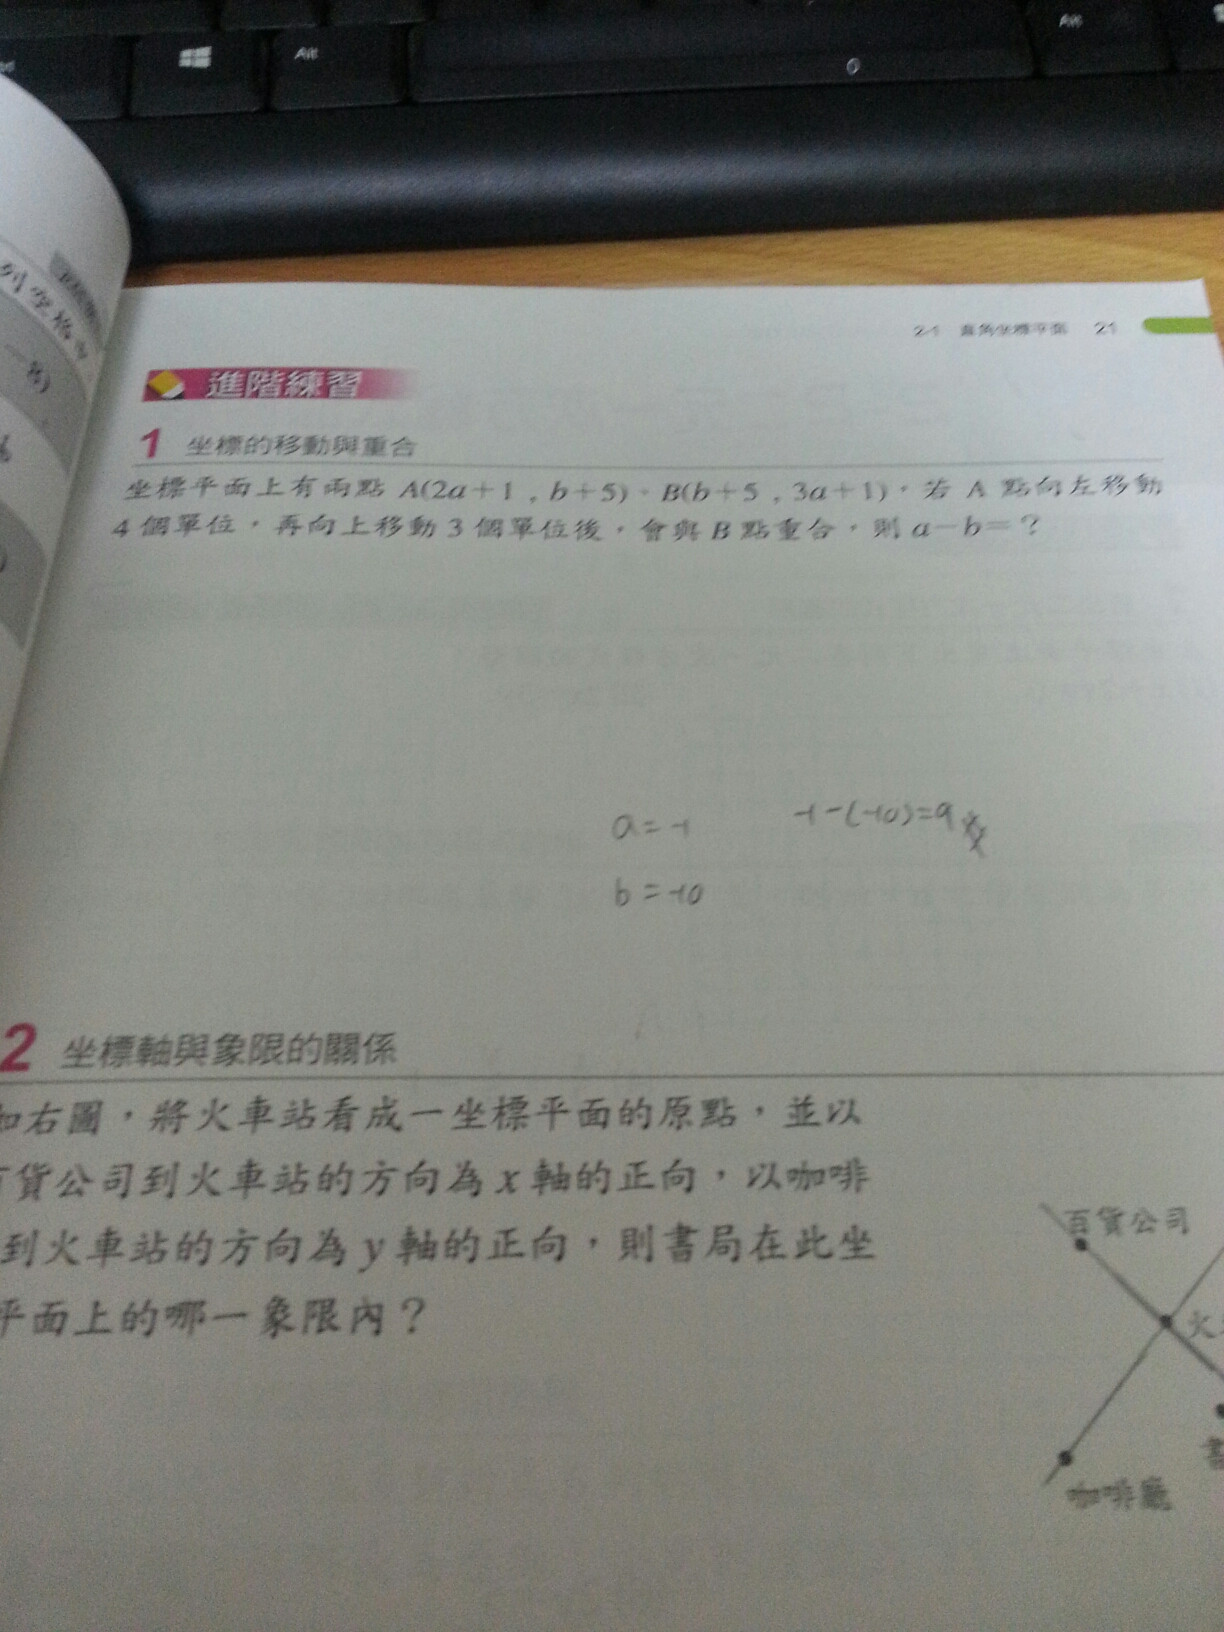 Alt
Alt
2-1 直角坐標平面 21
進階練習
1 坐標的移動與重合
坐標平面上有兩點 A(2a+1，b+5)、B(b+5，3a+1)，若 A 點向左移動
4 個單位，再向上移動 3 個單位後，會與 B 點重合，則 a－b＝？
a=-1
-1-(-10)=9
b=-10
2 坐標軸與象限的關係
如右圖，將火車站看成一坐標平面的原點，並以
百貨公司到火車站的方向為 x 軸的正向，以咖啡
到火車站的方向為 y 軸的正向，則書局在此坐
平面上的哪一象限內？
百貨公司
火
書
咖啡廳